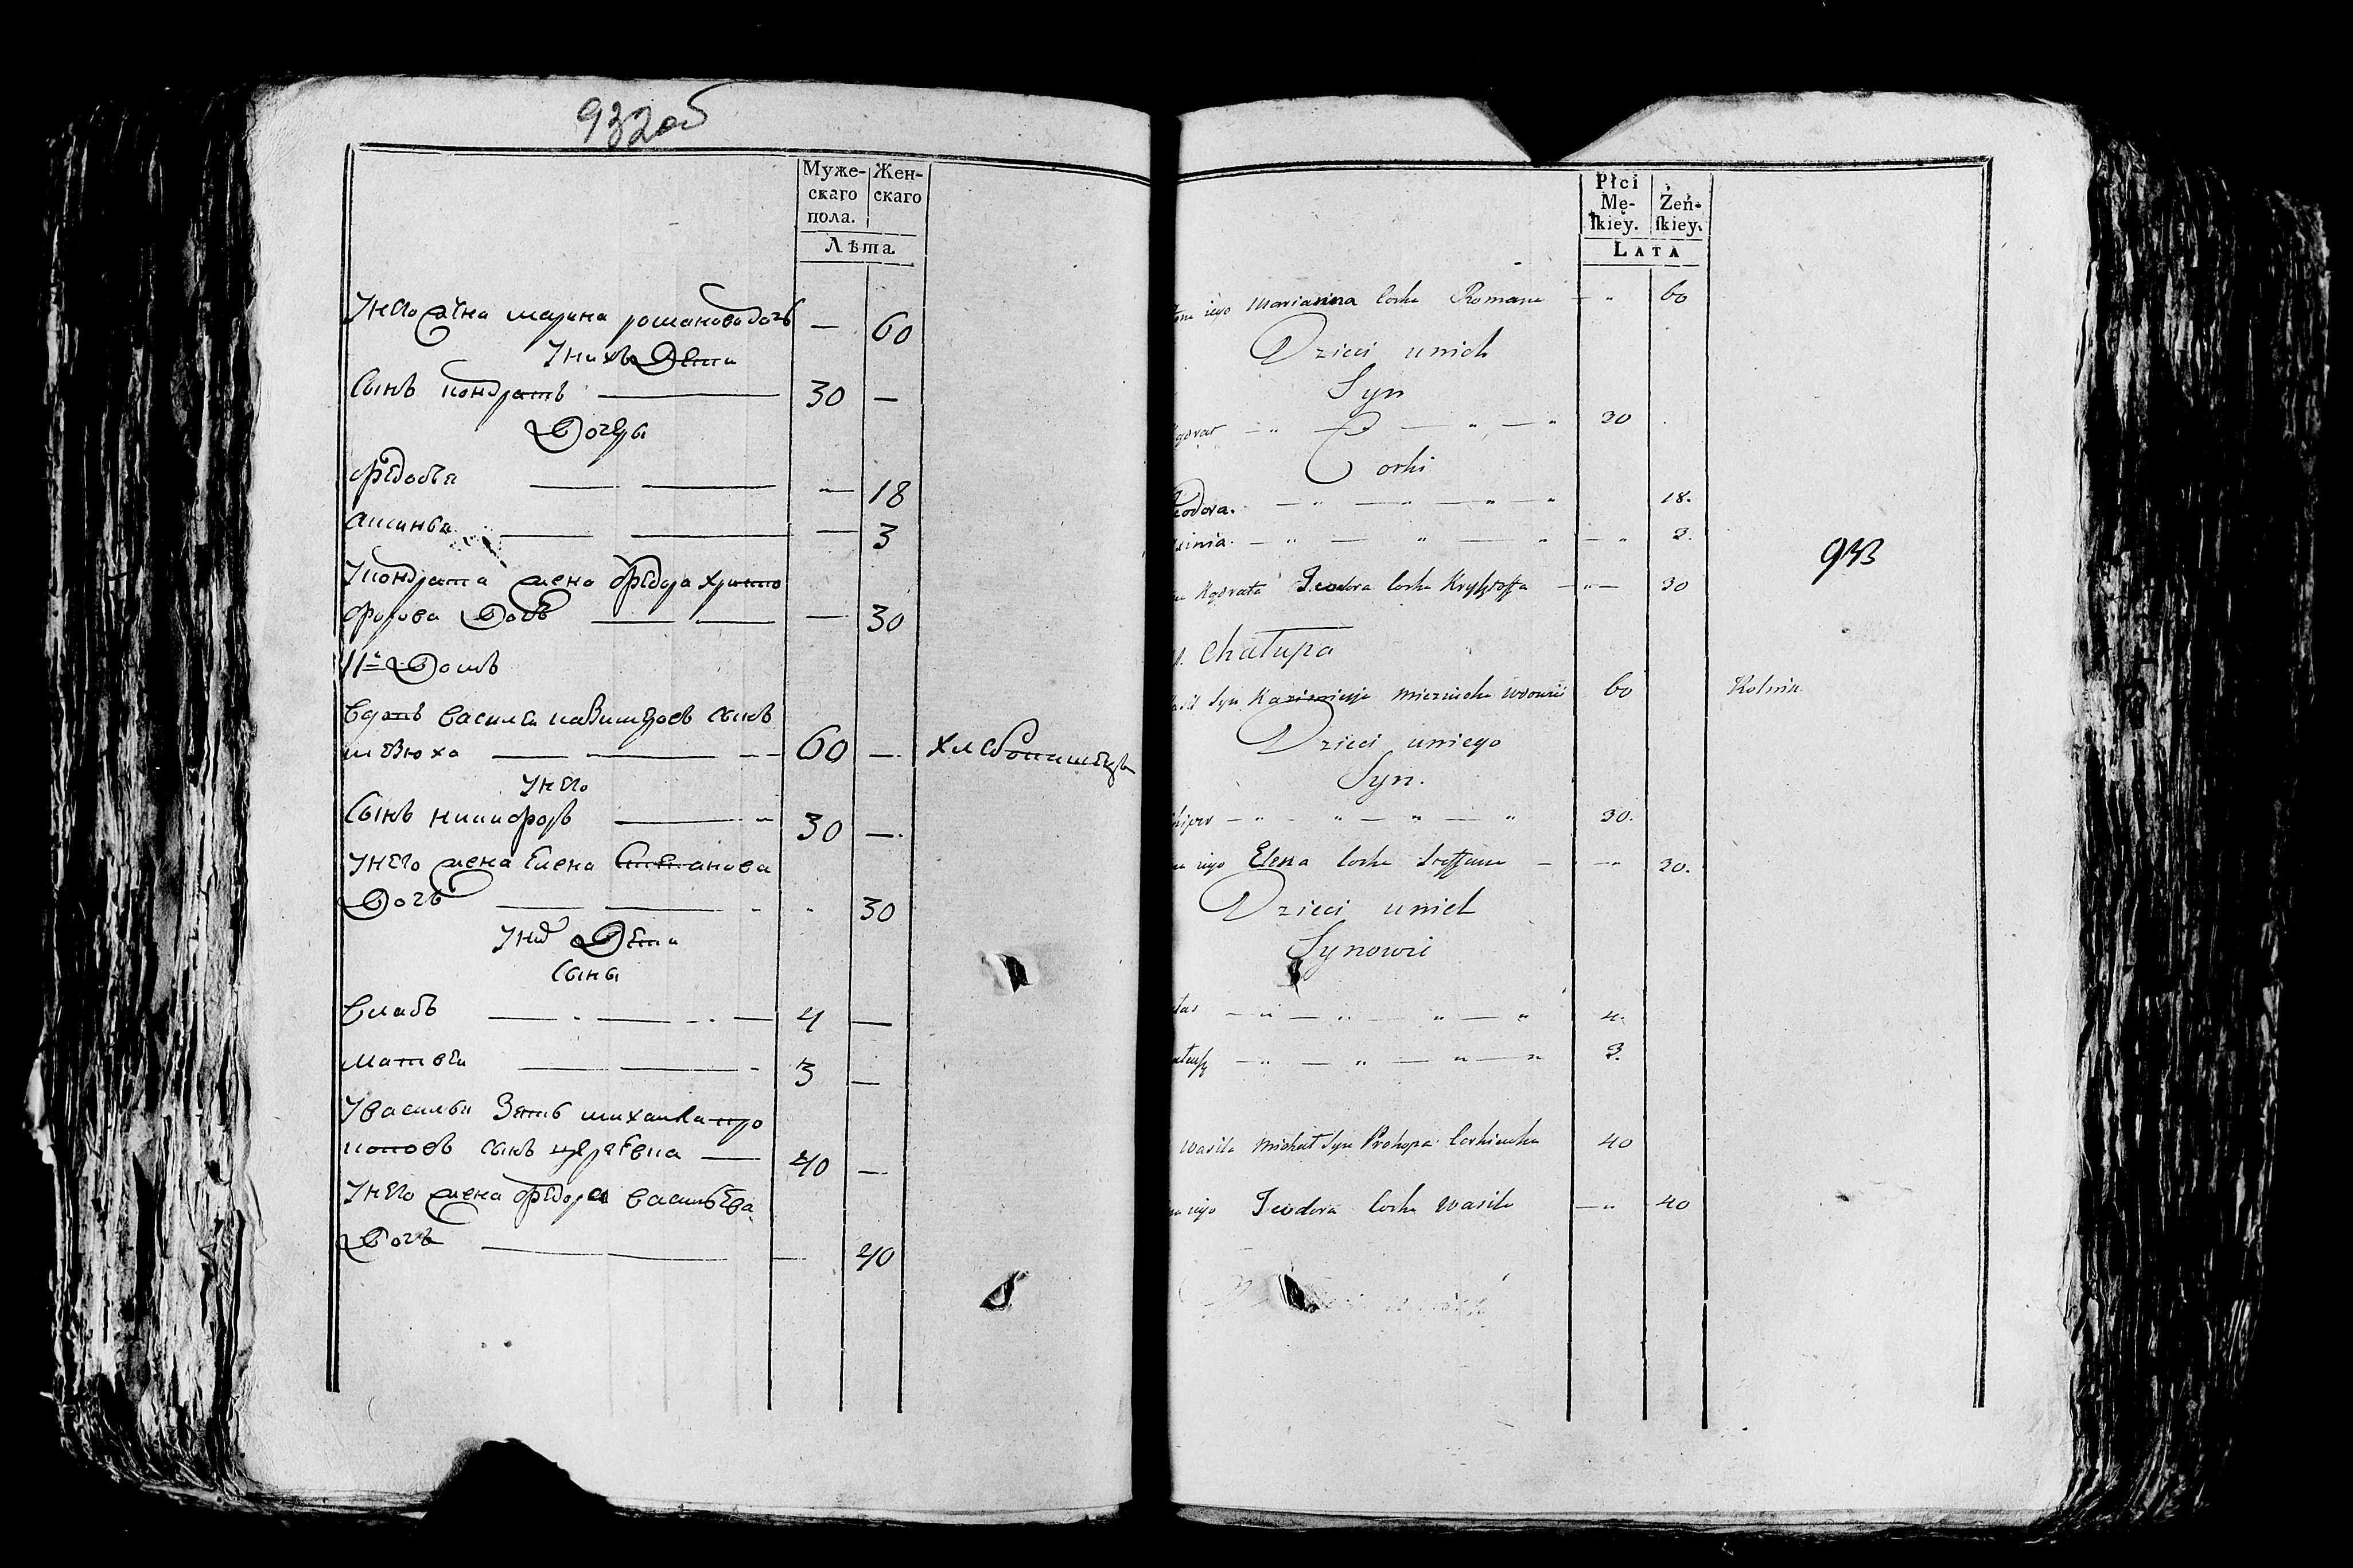 932об
Муже-
скаго
пола.
Жен-
скаго
Лѣта
У него жена марина романова дочь — 60
У нихъ Дети
Сынъ кондратъ — 30 —
Дочери
Федосья — — 18
аксинья — — 3
У кондрата жена федора христо
форова Дочь — — 30
11й Домъ
василей сынъ
60 — хлебопашецъ
У него
Сынъ никифоръ — 30 —
У него жена Елена Степанова
Дочь — 30
У них Дети
Сыны
власъ — 4 —
матвей — 3 —
У василья зять михаила про
коповъ сынъ — 40 —
У него жена федора васильева
Дочь — 40
Płci
Mę-
ſkiey.
Żeń-
ſkiey.
LATA
iego Marianna Corka Romana — 60
Dzieci unich
Syn
30
Corki
eodora. 18.
xinia. 3.
Teodora Corka Krysztoffa — 30
Chałupa
Syn Kazimierza wdowiec 60 Rolnik
Dzieci uniego
Syn.
30.
iego Elena Corka Steffana — 30.
Dzieci unich
Synowie
4.
3.
Wasila Michał Syn Prokopa 40
iego Teodora Corka Wasila — 40
933